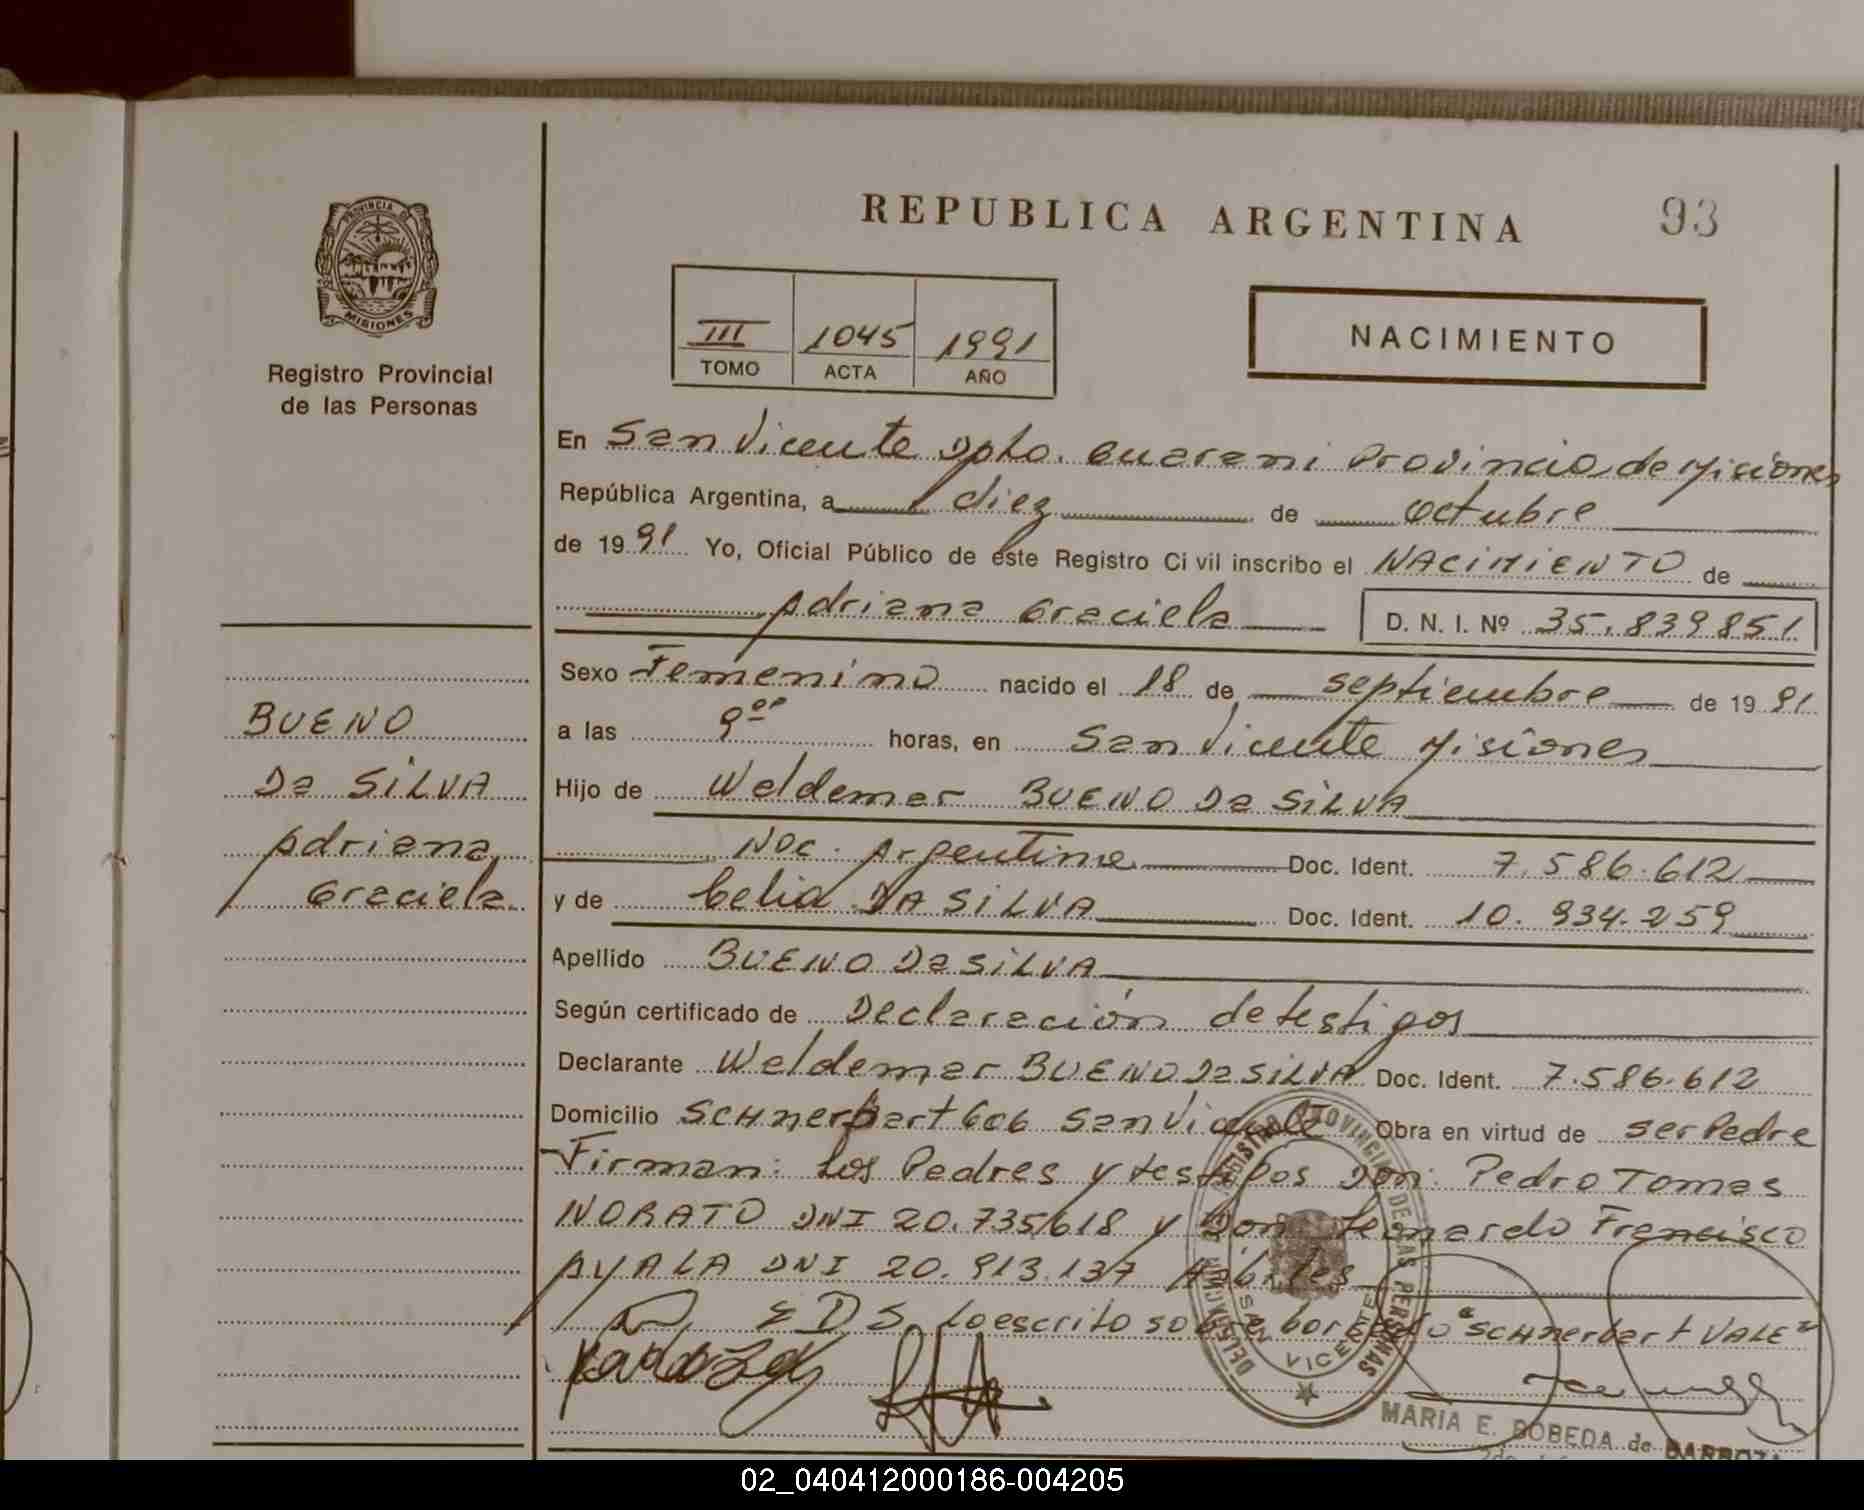 REPUBLICA ARGENTINA
93
PROVINCIA DE
MISIONES
Registro Provincial
de las Personas
III 1045 1991
TOMO ACTA AÑO
NACIMIENTO
En San Vicente Dpto. Guarani Provincia de Misiones
República Argentina, a diez de octubre
de 19 91 Yo, Oficial Público de este Registro Ci vil inscribo el NACIMIENTO de
Adriana Graciela D. N. I. Nº 35.839851
Sexo Femenino nacido el 18 de septiembre de 19 91
a las 9 horas, en San Vicente Misiones
Hijo de Waldemar BUENO Da SILVA
Nac. Argentina Doc. Ident. 7.586.612
y de Celia DA SILVA Doc. Ident. 10.934.259
Apellido BUENO Da SILVA
Según certificado de Declaración de testigos
Declarante Waldemar BUENO Da SILVA Doc. Ident. 7.586.612
Domicilio SCHnerbart 606 San Vicente Obra en virtud de ser Padre
Firman: Los Padres y testigos Don: Pedro Tomas
NORATO DNI 20.735618 y Don Leonardo Francisco
AYALA DNI 20.913.137 Habiles
E D S. Lo escrito sobre borrado "SCHnerbart VALE"
BUENO
Da SILVA
Adriana
Graciela
REGISTRO PROVINCIAL DE LAS PERSONAS
DELEGACION
SAN VICENTE
MARIA E. BOBEDA de BARBOZA
02_040412000186-004205